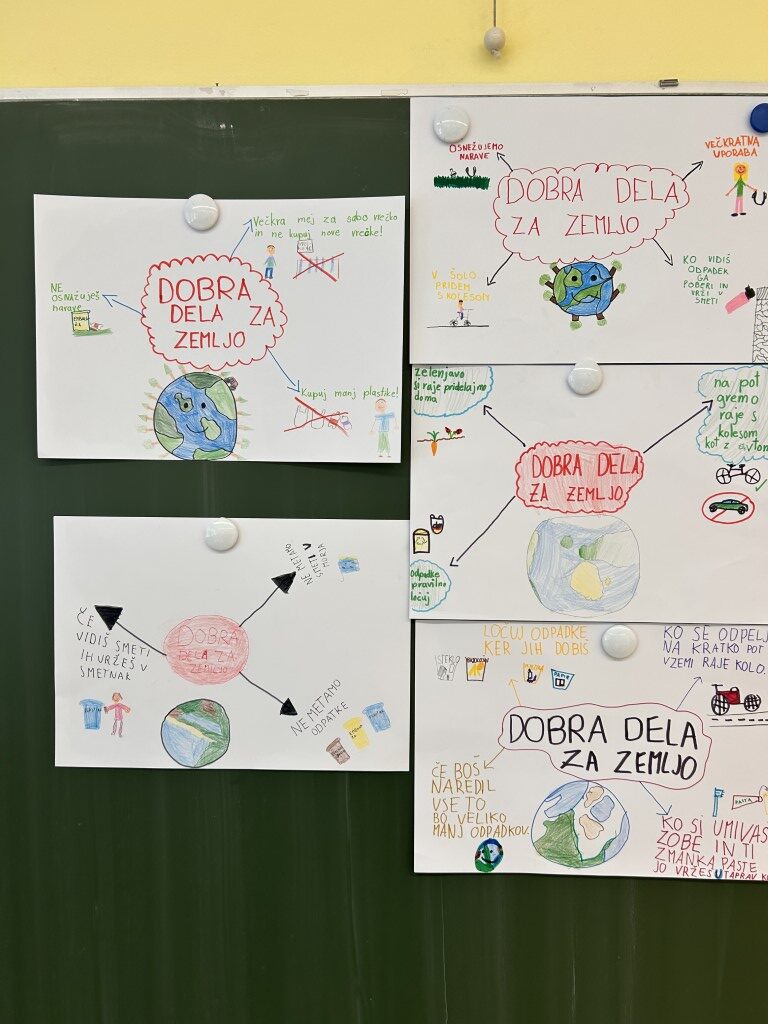 Večkra mej za sabo vrečko
in ne kupuj nove vrečke!
NE
OSNAŽUJEŠ
narave
DOBRA
DELA ZA
ZEMLJO
Kupuj manj plastike!
OSNEŽUJEMO
NARAVE
VEČKRATNA
UPORABA
DOBRA DELA
ZA ZEMLJO
V ŠOLO
PRIDEM
S KOLESOM
KO VIDIŠ
ODPADEK
GA
POBERI IN
VRŽI V
SMETI
zelenjavo
si raje pridelajmo
doma
na pot
gremo
raje s
kolesom
kot z avtom
DOBRA DELA
ZA ZEMLJO
odpadke
pravilno
ločuj
NE METAMO
SMETI V
MORJA
ČE
VIDIŠ SMETI
JIH VRŽEŠ V
SMETNAK
DOBRA
DELA ZA
ZEMLJO
NE METAMO
ODPATKE
LOČUJ ODPADKE
KER JIH DOBIŠ
KO SE ODPELJ
NA KRATKO POT
VZEMI RAJE KOLO.
STEKLO
PAPIR
DOBRA DELA
ZA ZEMLJO
ČE BOŠ
NAREDIL
VSE TO
BO VELIKO
MANJ ODPADKOV.
PASTA
KO SI UMIVAŠ
ZOBE IN TI
ZMANKA PASTE
JO VRŽEŠ